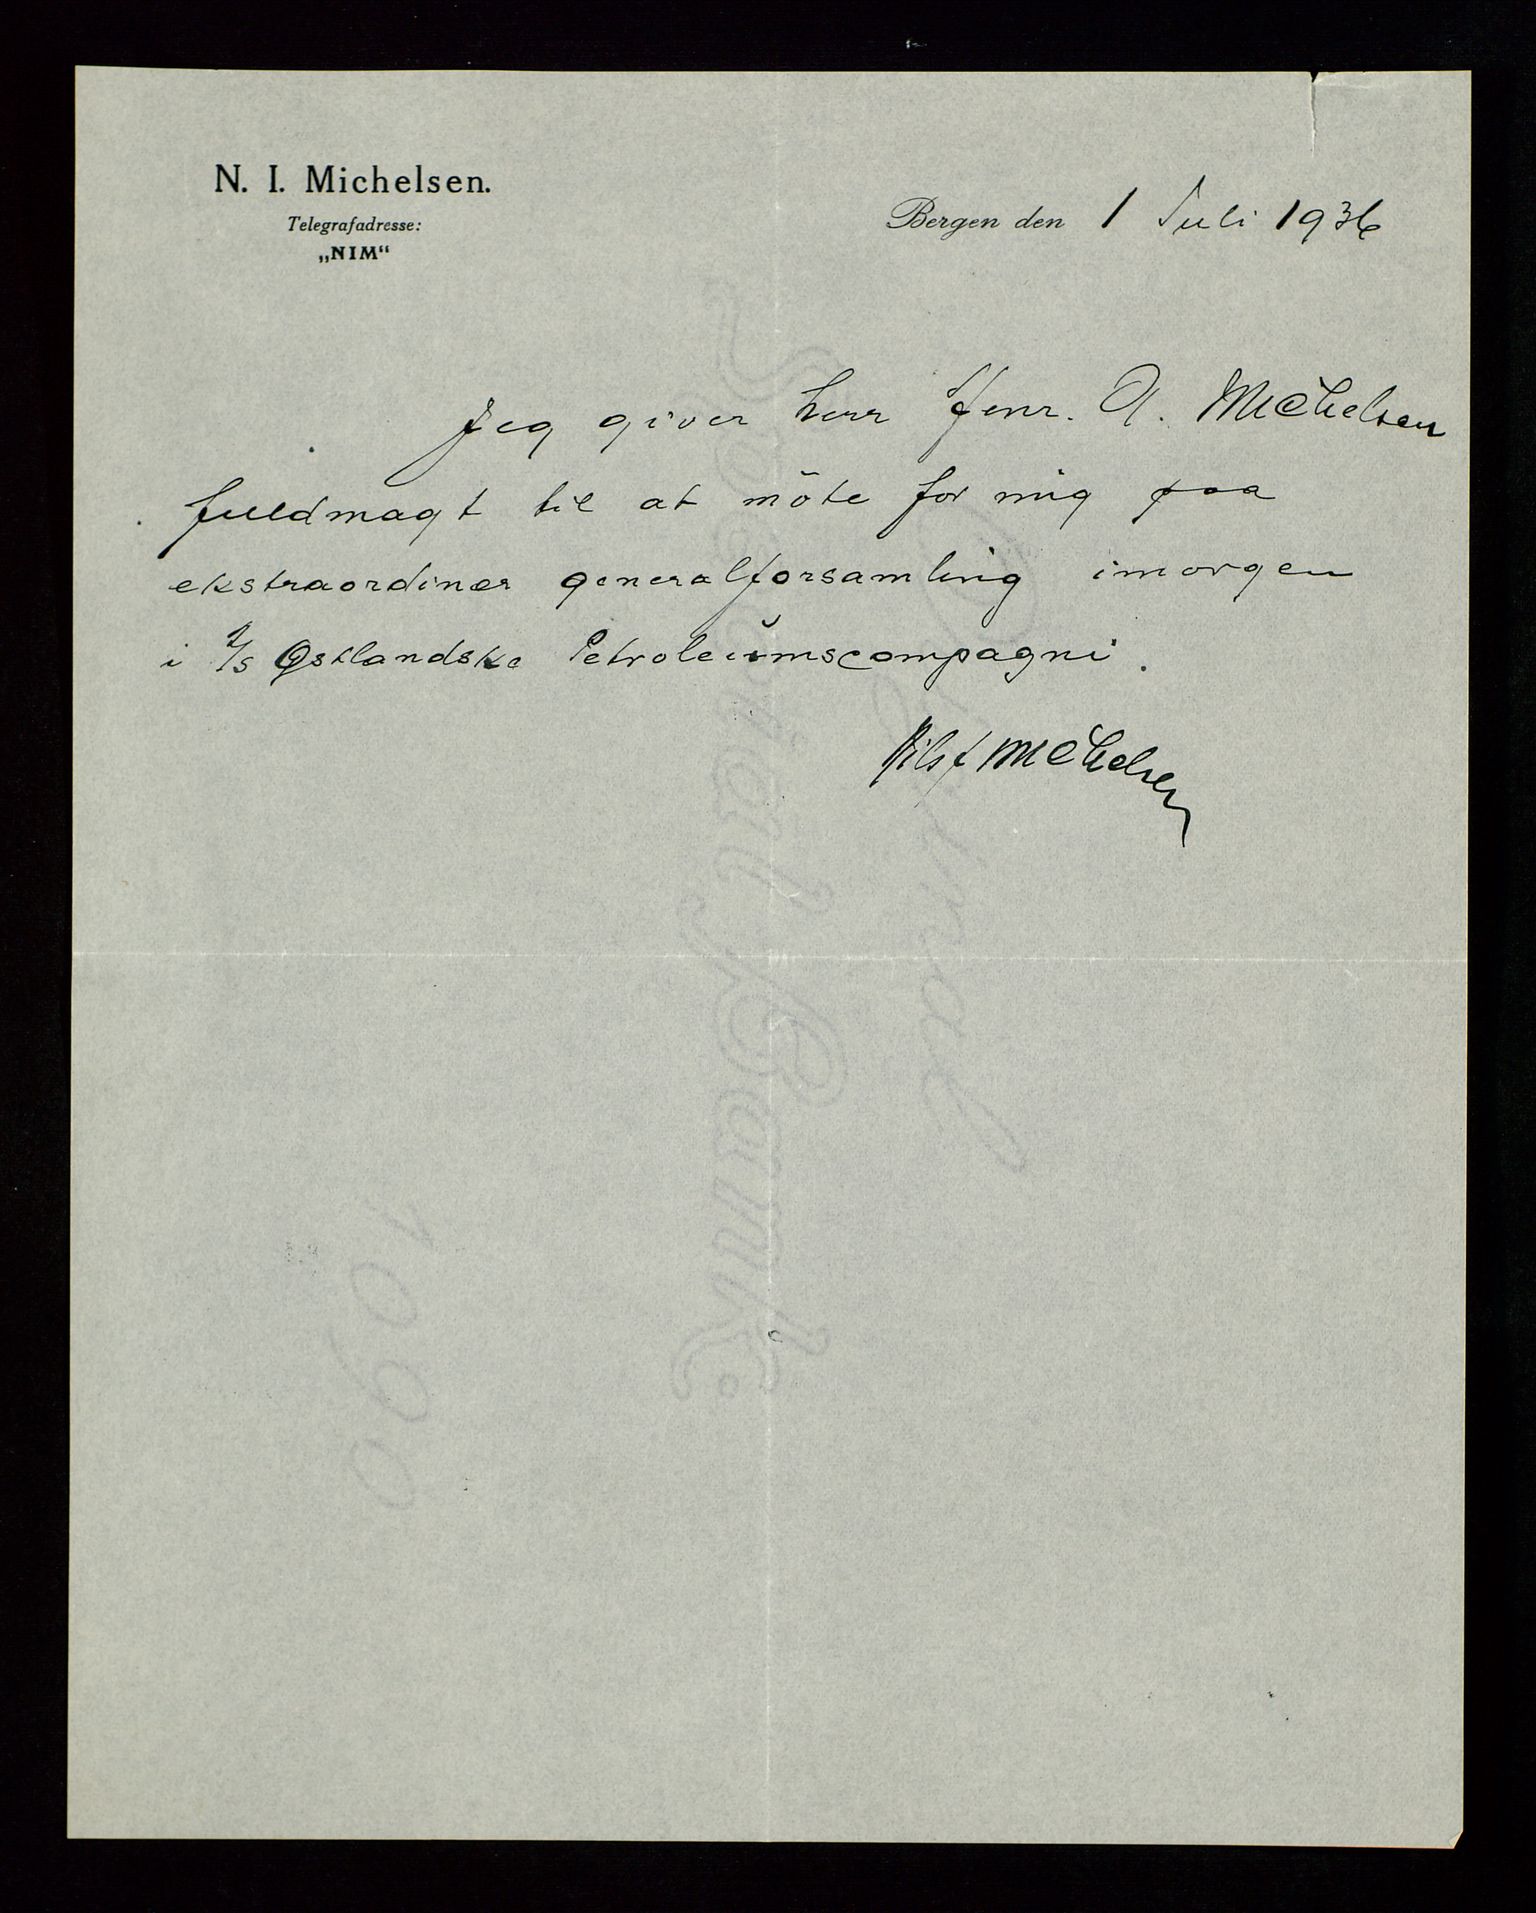 N. I. Michelsen.
Telegrafadresse:
„NIM“
Bergen den 1 Juli 1936
Jeg giver herr Henr. A. Michelsen
fuldmagt til at möte for mig paa
ekstraordinær generalforsamling imorgen
i A/S Østlandske Petroleŭmscompagni.
Nils J Michelsen